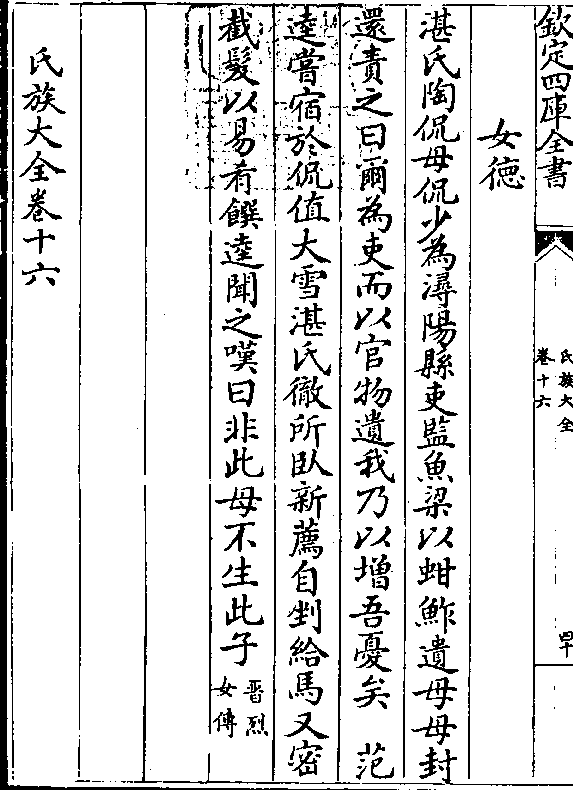 欽定四庫全書
氏族大全
卷十六
四十
女德
湛氏陶侃母侃少為潯陽縣吏監魚梁以蚶鮓遺母母封
還責之曰爾為吏而以官物遺我乃以增吾憂矣 范
逵嘗宿於侃值大雪湛氏徹所臥新薦自剉給馬又密
截髮以易肴饌逵聞之嘆曰非此母不生此子晉烈
女傳
氏族大全卷十六